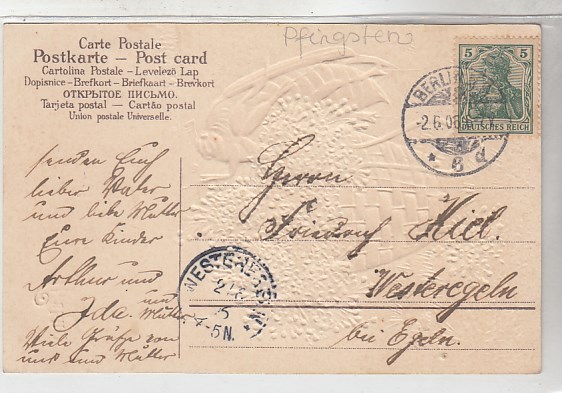 Pfingsten
Carte Postale
Postkarte — Post card
Cartolina Postale - Levelező Lap
Dopisnice - Brefkort - Briefkaart - Brevkort
ОТКРЫТОЕ ПИСЬМО.
Tarjeta postal — Cartão postal
Union postale Universelle.
5 5
DEUTSCHES REICH
BERLIN
-2.6.06
* 8 d
senden Euch
lieber Vater
und liebe Mutter
Eure Kinder
Arthur und
Ida. und Mutter
Viele Grüße von
uns und Mutter
Herrn
Friedrich Kiel.
Westeregeln
bei Egeln.
WESTEREGELN
4-5N.